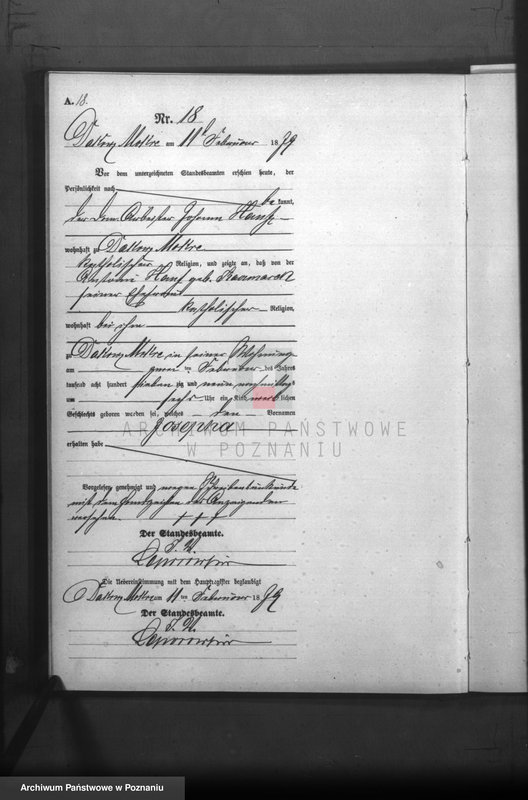 A. 18.
Nr. 18
Dakow Mokre am 11 Februar 1879
Vor dem unterzeichneten Standesbeamten erschien heute, der
Persönlichkeit nach bekannt,
der Arbeiter Johann
wohnhaft zu Dakow Mokre
katholischer Religion, und zeigte an, daß von der
geb.
seiner Ehefrau
katholischer Religion,
wohnhaft bei ihm
zu Dakow Mokre in seiner Wohnung
am ten Februar des Jahres
tausend acht hundert sieben zig und neun nachmittags
um sechs Uhr ein Kind weiblichen
Geschlechts geboren worden sei, welches den Vornamen
Josepha
erhalten habe
Vorgelesen, genehmigt und wegen Schreibensunkunde
mit dem Handzeichen des Anzeigenden
versehen. + + +
Der Standesbeamte.
Die Uebereinstimmung mit dem Hauptregister beglaubigt
Dakow Mokre am 11 ten Februar 1879
Der Standesbeamte.
ARCHIWUM PAŃSTWOWE
W POZNANIU
Archiwum Państwowe w Poznaniu